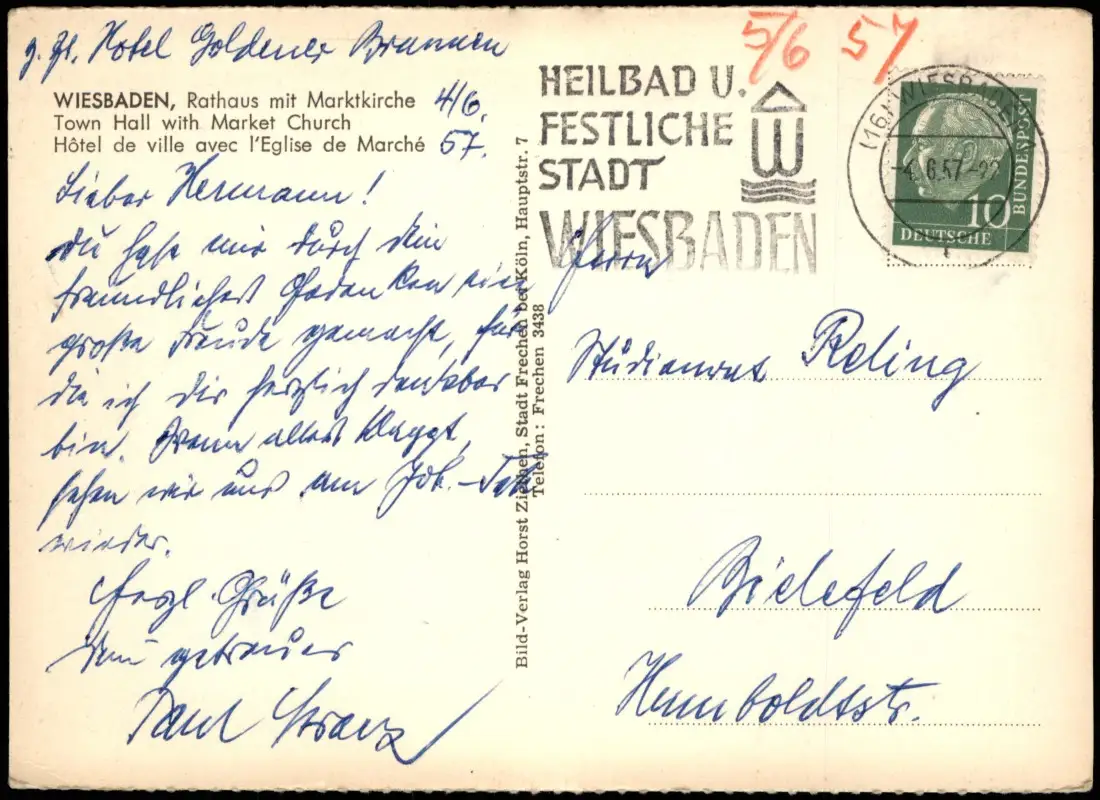 z. Zt. Hotel Goldener Brunnen
WIESBADEN, Rathaus mit Marktkirche
Town Hall with Market Church
Hôtel de ville avec l'Eglise de Marché
4/6.
57.
Lieber Hermann!
Du hast mir durch dein
freundliches Gedenken eine
große Freude gemacht, für
die ich dir herzlich dankbar
bin. Wenn alles klappt,
sehen wir uns am Joh.-
wieder.
Herzl. Grüße
Dein getreuer
Paul
Bild-Verlag Horst Ziethen, Stadt Frechen bei Köln, Hauptstr. 7
Telefon: Frechen 3438
5/6 57
HEILBAD U.
FESTLICHE
STADT
WIESBADEN
W
(16) WIESBADEN
-4.6.57-22
10
DEUTSCHE
BUNDESPOST
Herrn
Studienrat Reling
Bielefeld
Humboldtstr.